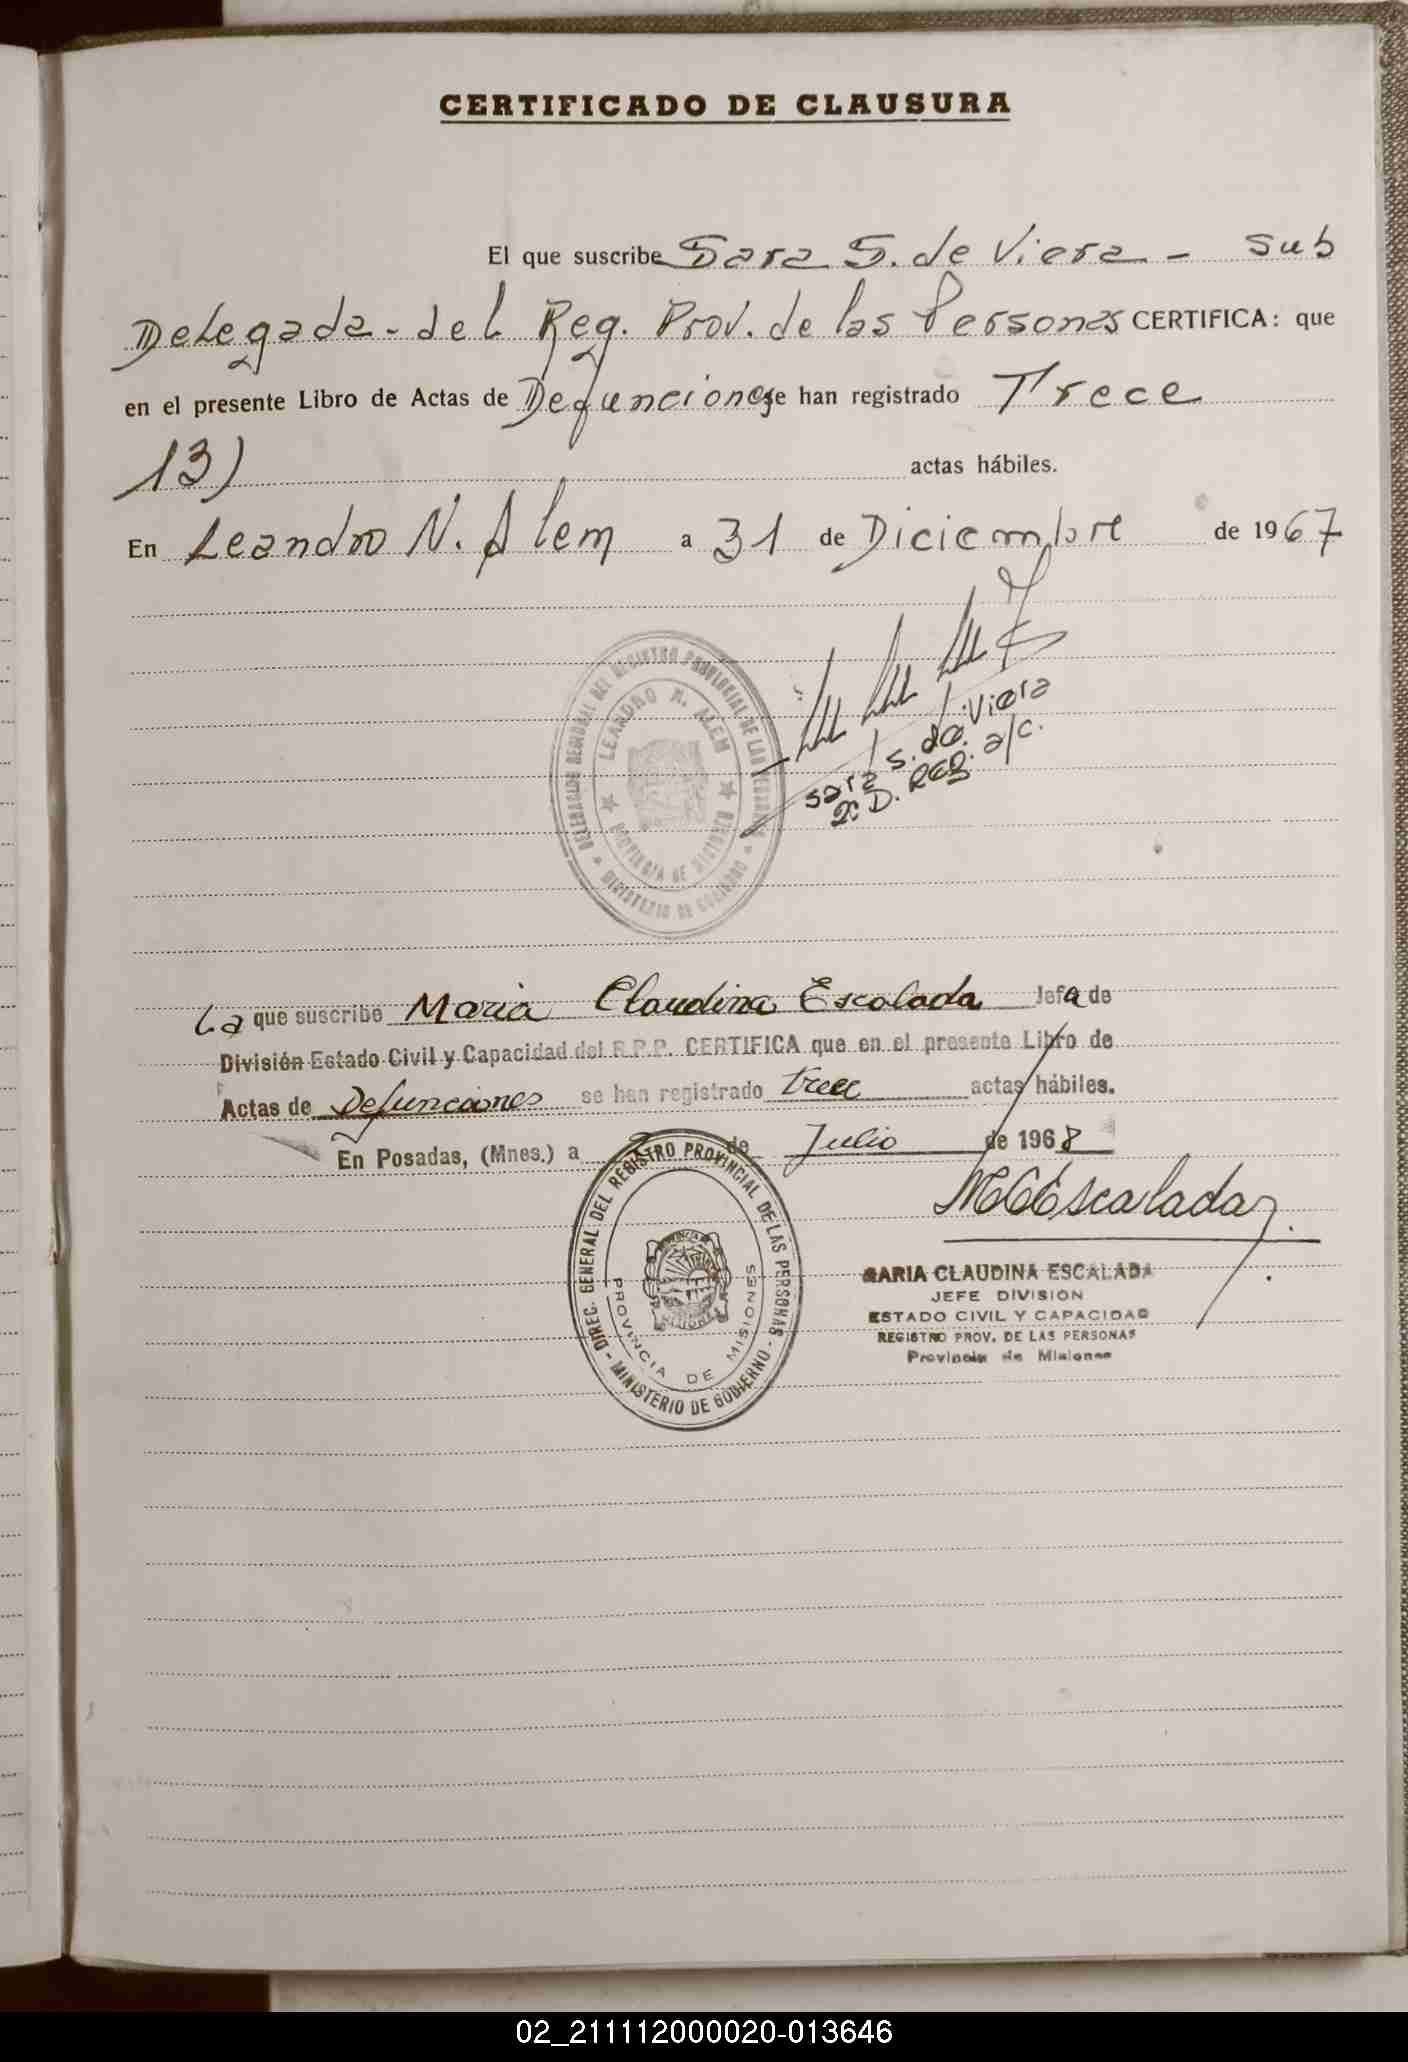 CERTIFICADO DE CLAUSURA
El que suscribe Sara S. de Viera - Sub
Delegada - del Reg. Prov. de las Personas CERTIFICA: que
en el presente Libro de Actas de Defunciones se han registrado Trece
13) actas hábiles.
En Leandro N. Alem a 31 de Diciembre de 1967
DELEGACION REGIONAL DEL REGISTRO PROVINCIAL DE LAS PERSONAS
LEANDRO N. ALEM
PROVINCIA DE MISIONES
MINISTERIO DE GOBIERNO
Sara S. de Viera
D. REG. a/c.
La que suscribe Maria Claudina Escalada Jefa de
División Estado Civil y Capacidad del R.P.P. CERTIFICA que en el presente Libro de
Actas de Defunciones se han registrado trece actas hábiles.
En Posadas, (Mnes.) a de Julio de 1968
DIREC. GENERAL DEL REGISTRO PROVINCIAL DE LAS PERSONAS -
PROVINCIA DE MISIONES
- MINISTERIO DE GOBIERNO
MCEscalada
MARIA CLAUDINA ESCALADA
JEFE DIVISION
ESTADO CIVIL Y CAPACIDAD
REGISTRO PROV. DE LAS PERSONAS
Provincia de Misiones
02_211112000020-013646